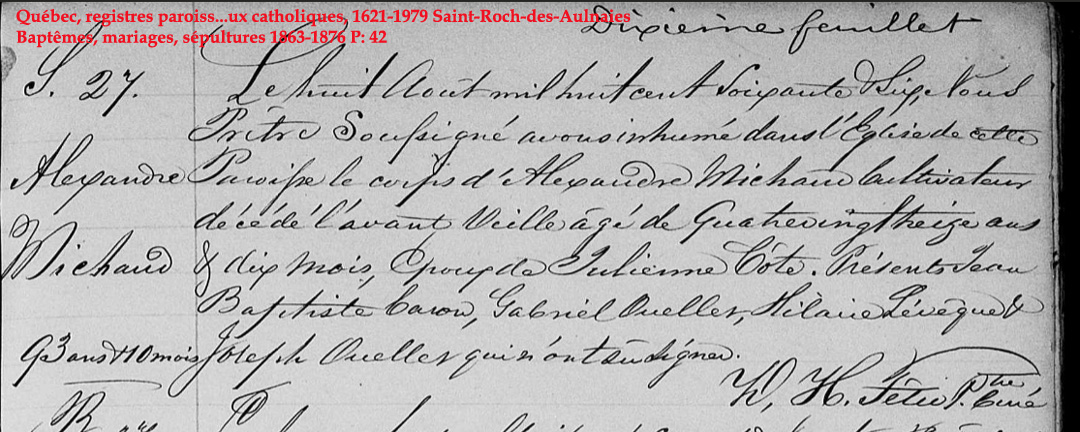 Québec, registres paroiss...ux catholiques, 1621-1979 Saint-Roch-des-Aulnaies
Baptêmes, mariages, sépultures 1863-1876 P: 42
Dixième feuillet
S. 27.
Alexandre
Michaud
93 ans & 10 mois
Le huit Août mil huit cent soixante & Six, Nous
Prêtre Soussigné avons inhumé dans l'Église de cette
Paroisse le corps d'Alexandre Michaud Cultivateur
décédé l'avant Veille âgé de Quatrevingt treize ans
& dix mois, Epoux de Julienne Côté. Présents Jean
Baptiste Caron, Gabriel Ouellet, Hilaire Lévèque &
Joseph Ouellet qui n'ont su signer.
Ptre Curé